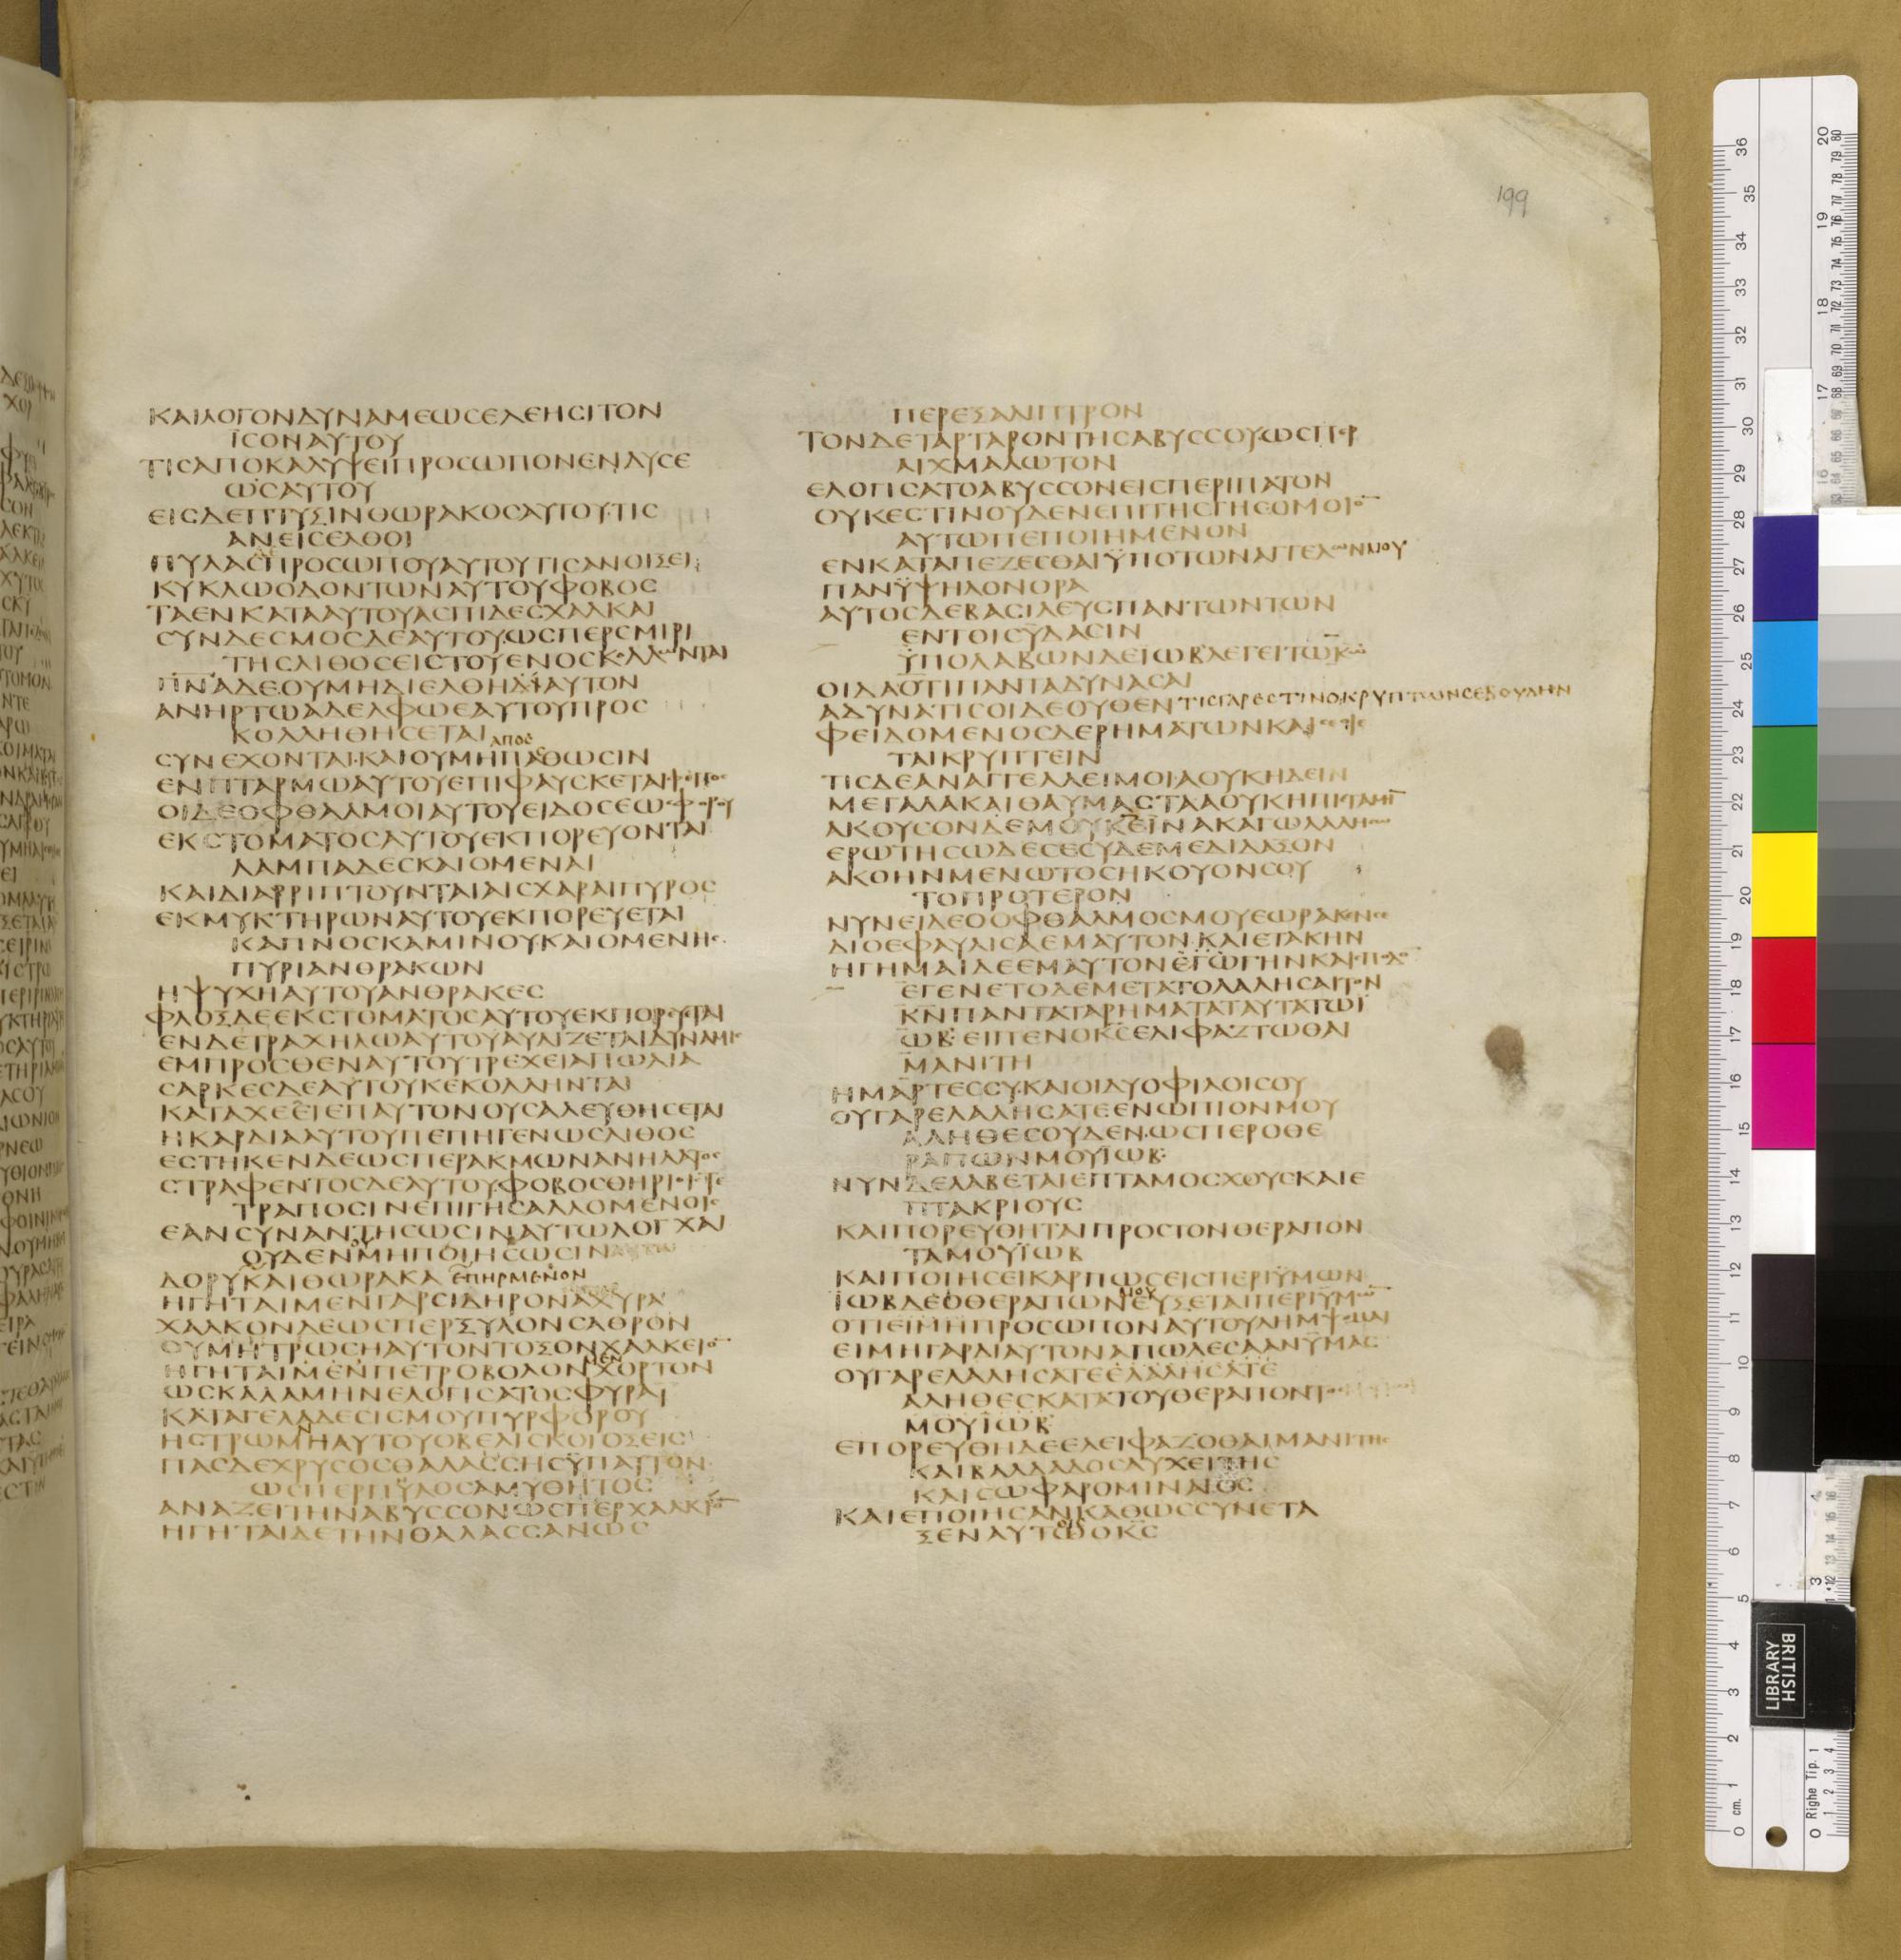 199
ΚΑΙΛΟΓΟΝΔΥΝΑΜΕΩϹΕΛΕΗϹΙΤΟΝ
ΪϹΟΝΑΥΤΟΥ
ΤΙϹΑΠΟΚΑΛΥΨΕΙΠΡΟϹΩΠΟΝΕΝΔΥϹΕ
ΩϹΑΥΤΟΥ
ΕΙϹΔΕΠΤΥΞΙΝΘΩΡΑΚΟϹΑΥΤΟΥΤΙϹ
ΑΝΕΙϹΕΛΘΟΙ
ΠΥΛΑϹΠΡΟϹΩΠΟΥΑΥΤΟΥΤΙϹΑΝΟΙΞΕΙ
ΚΥΚΛΩΟΔΟΝΤΩΝΑΥΤΟΥΦΟΒΟϹ
ΤΑΕΝΚΑΤΑΑΥΤΟΥΑϹΠΙΔΕϹΧΑΛΚΑΙ
ϹΥΝΔΕϹΜΟϹΔΕΑΥΤΟΥΩϹΠΕΡϹΜΙΡΙ
ΤΗϹΛΙΘΟϹΕΙϹΤΟΥΕΝΟϹΚΟΛΛΩΝΤΑΙ
ΠΝΑΔΕΟΥΜΗΔΙΕΛΘΗΑΥΤΟΝ
ΑΝΗΡΤΩΑΔΕΛΦΩΕΑΥΤΟΥΠΡΟϹ
ΚΟΛΛΗΘΗϹΕΤΑΙ
ϹΥΝΕΧΟΝΤΑΙΚΑΙΟΥΜΗΠΑΘΩϹΙΝ
ΕΝΠΤΑΡΜΩΑΥΤΟΥΕΠΙΦΑΥϹΚΕΤΑΙΦΕΓΓΟϹ
ΟΙΔΕΟΦΘΑΛΜΟΙΑΥΤΟΥΕΙΔΟϹΕΩϹΦΟΡΟΥ
ΕΚϹΤΟΜΑΤΟϹΑΥΤΟΥΕΚΠΟΡΕΥΟΝΤΑΙ
ΛΑΜΠΑΔΕϹΚΑΙΟΜΕΝΑΙ
ΚΑΙΔΙΑΡΡΙΠΤΟΥΝΤΑΙΑΙϹΧΑΡΑΙΠΥΡΟϹ
ΕΚΜΥΚΤΗΡΩΝΑΥΤΟΥΕΚΠΟΡΕΥΕΤΑΙ
ΚΑΠΝΟϹΚΑΜΙΝΟΥΚΑΙΟΜΕΝΗϹ
ΠΥΡΙΑΝΘΡΑΚΩΝ
ΗΨΥΧΗΑΥΤΟΥΑΝΘΡΑΚΕϹ
ΦΛΟΞΔΕΕΚϹΤΟΜΑΤΟϹΑΥΤΟΥΕΚΠΟΡΕΥΕΤΑΙ
ΕΝΔΕΤΡΑΧΗΛΩΑΥΤΟΥΑΥΛΙΖΕΤΑΙΔΥΝΑΜΙϹ
ΕΜΠΡΟϹΘΕΝΑΥΤΟΥΤΡΕΧΕΙΑΠΩΛΙΑ
ϹΑΡΚΕϹΔΕΑΥΤΟΥΚΕΚΟΛΛΗΝΤΑΙ
ΚΑΤΑΧΕΕΙΕΠΑΥΤΟΝΟΥϹΑΛΕΥΘΗϹΕΤΑΙ
ΗΚΑΡΔΙΑΑΥΤΟΥΠΕΠΗΓΕΝΩϹΛΙΘΟϹ
ΕϹΤΗΚΕΝΔΕΩϹΠΕΡΑΚΜΩΝΑΝΗΛΑΤΟϹ
ϹΤΡΑΦΕΝΤΟϹΔΕΑΥΤΟΥΦΟΒΟϹΘΗΡΙΟΙϹΤΕ
ΤΡΑΠΟϹΙΝΕΠΙΓΗϹΑΛΛΟΜΕΝΟΙϹ
ΕΑΝϹΥΝΑΝΤΗϹΩϹΙΝΑΥΤΩΛΟΓΧΑΙ
ΟΥΔΕΝΜΗΠΟΙΗϹΩϹΙΝ
ΔΟΡΥΚΑΙΘΩΡΑΚΑ ΕΠΗΡΜΕΝΟΝ
ΗΓΗΤΑΙΜΕΝΓΑΡϹΙΔΗΡΟΝΑΧΥΡΑ
ΧΑΛΚΟΝΔΕΩϹΠΕΡΞΥΛΟΝϹΑΘΡΟΝ
ΟΥΜΗΤΡΩϹΗΑΥΤΟΝΤΟΞΟΝΧΑΛΚΕΙΟ̅
ΗΓΗΤΑΙΜΕΝΠΕΤΡΟΒΟΛΟΝΧΟΡΤΟΝ
ΩϹΚΑΛΑΜΗΝΕΛΟΓΙϹΑΤΟϹΦΥΡΑΙ
ΚΑΤΑΓΕΛΑΔΕϹΙϹΜΟΥΠΥΡΦΟΡΟΥ
ΗϹΤΡΩΜΝΗΑΥΤΟΥΟΒΕΛΙϹΚΟΙΟΞΕΙϹ
ΠΑϹΔΕΧΡΥϹΟϹΘΑΛΑϹϹΗϹΫΠΑΥΤΟΝ
ΩϹΠΕΡΠΥΛΟϹΑΜΥΘΗΤΟϹ
ΑΝΑΖΕΙΤΗΝΑΒΥϹϹΟΝΩϹΠΕΡΧΑΛΚΙΟ̅
ΗΓΗΤΑΙΔΕΤΗΝΘΑΛΑϹϹΑΝΩϹ
ΠΕΡΕΞΑΛΙΠΤΡΟΝ
ΤΟΝΔΕΤΑΡΤΑΡΟΝΤΗϹΑΒΥϹϹΟΥΩϹΠΕΡ
ΑΙΧΜΑΛΩΤΟΝ
ΕΛΟΓΙϹΑΤΟΑΒΥϹϹΟΝΕΙϹΠΕΡΙΠΑΤΟΝ
ΟΥΚΕϹΤΙΝΟΥΔΕΝΕΠΙΤΗϹΓΗϹΟΜΟΙΟ̅
ΑΥΤΩΠΕΠΟΙΗΜΕΝΟΝ
ΕΝΚΑΤΑΠΕΖΕϹΘΑΙΫΠΟΤΩΝΑΓΓΕΛΩΝΜΟΥ
ΠΑΝΫΨΗΛΟΝΟΡΑ
ΑΥΤΟϹΔΕΒΑϹΙΛΕΥϹΠΑΝΤΩΝΤΩΝ
ΕΝΤΟΙϹΥΔΑϹΙΝ
ΫΠΟΛΑΒΩΝΔΕΙΩΒΛΕΓΕΙΤΩΚΩ
ΟΙΔΑΟΤΙΠΑΝΤΑΔΥΝΑϹΑΙ
ΑΔΥΝΑΤΙϹΟΙΔΕΟΥΘΕΝΤΙϹΓΑΡΕϹΤΙΝΟΚΡΥΠΤΩΝϹΕΒΟΥΛΗΝ
ΦΕΙΔΟΜΕΝΟϹΔΕΡΗΜΑΤΩΝΚΑΙϹΕΟΙΕ
ΤΑΙΚΡΥΠΤΕΙΝ
ΤΙϹΔΕΑΝΑΓΓΕΛΛΕΙΜΟΙΑΟΥΚΗΔΕΙΝ
ΜΕΓΑΛΑΚΑΙΘΑΥΜΑϹΤΑΑΟΥΚΗΠΙϹΤΑΜΗ̅
ΑΚΟΥϹΟΝΔΕΜΟΥΚΕΙΝΑΚΑΓΩΛΑΛΗϹΩ
ΕΡΩΤΗϹΩΔΕϹΕϹΥΔΕΜΕΔΙΔΑΞΟΝ
ΑΚΟΗΝΜΕΝΩΤΟϹΗΚΟΥΟΝϹΟΥ
ΤΟΠΡΟΤΕΡΟΝ
ΝΥΝΕΙΔΕΟΟΦΘΑΛΜΟϹΜΟΥΕΩΡΑΚΕΝϹΕ
ΔΙΟΕΦΑΥΛΙϹΑΕΜΑΥΤΟΝΚΑΙΕΤΑΚΗΝ
ΗΓΗΜΑΙΔΕΕΜΑΥΤΟΝΕΓΩΓΗΝΚΑΙϹΠΟΔΟ̅
ΕΓΕΝΕΤΟΔΕΜΕΤΑΤΟΛΑΛΗϹΑΙΤΟΝ
ΚΝΠΑΝΤΑΤΑΡΗΜΑΤΑΤΑΥΤΑΤΩΙ
ΩΒΕΙΠΕΝΟΚϹΕΛΙΦΑΖΤΩΘΑΙ
ΜΑΝΙΤΗ
ΗΜΑΡΤΕϹϹΥΚΑΙΟΙΔΥΟΦΙΛΟΙϹΟΥ
ΟΥΓΑΡΕΛΑΛΗϹΑΤΕΕΝΩΠΙΟΝΜΟΥ
ΑΛΗΘΕϹΟΥΔΕΝΩϹΠΕΡΟΘΕ
ΡΑΠΩΝΜΟΥΪΩΒ
ΝΥΝΔΕΛΑΒΕΤΑΙΕΠΤΑΜΟϹΧΟΥϹΚΑΙΕ
ΠΤΑΚΡΙΟΥϹ
ΚΑΙΠΟΡΕΥΘΗΤΑΙΠΡΟϹΤΟΝΘΕΡΑΠΟΝ
ΤΑΜΟΥΪΩΒ
ΚΑΙΠΟΙΗϹΕΙΚΑΡΠΩϹΕΙϹΠΕΡΙΫΜΩΝ
ΪΩΒΔΕΟΘΕΡΑΠΩΝΜΟΥΕΥΞΕΤΑΙΠΕΡΙΫΜΩ̅
ΟΤΙΕΙΜΗΠΡΟϹΩΠΟΝΑΥΤΟΥΛΗΜΨΟΜΑΙ
ΕΙΜΗΓΑΡΔΙΑΥΤΟΝΑΠΩΛΕϹΑΑΝΫΜΑϹ
ΟΥΓΑΡΕΛΑΛΗϹΑΤΕΕΛΑΛΗϹΑΤΕ
ΑΛΗΘΕϹΚΑΤΑΤΟΥΘΕΡΑΠΟΝΤΟϹ
ΜΟΥΪΩΒ
ΕΠΟΡΕΥΘΗΔΕΕΛΕΙΦΑΖΟΘΑΙΜΑΝΙΤΗϹ
ΚΑΙΒΑΛΔΑΔΟϹΑΥΧΕΙΤΗϹ
ΚΑΙϹΩΦΑΡΟΜΙΝΑΙΟϹ
ΚΑΙΕΠΟΙΗϹΑΝΚΑΘΩϹϹΥΝΕΤΑ
ΞΕΝΑΥΤΩΟΚϹ
BRITISH LIBRARY